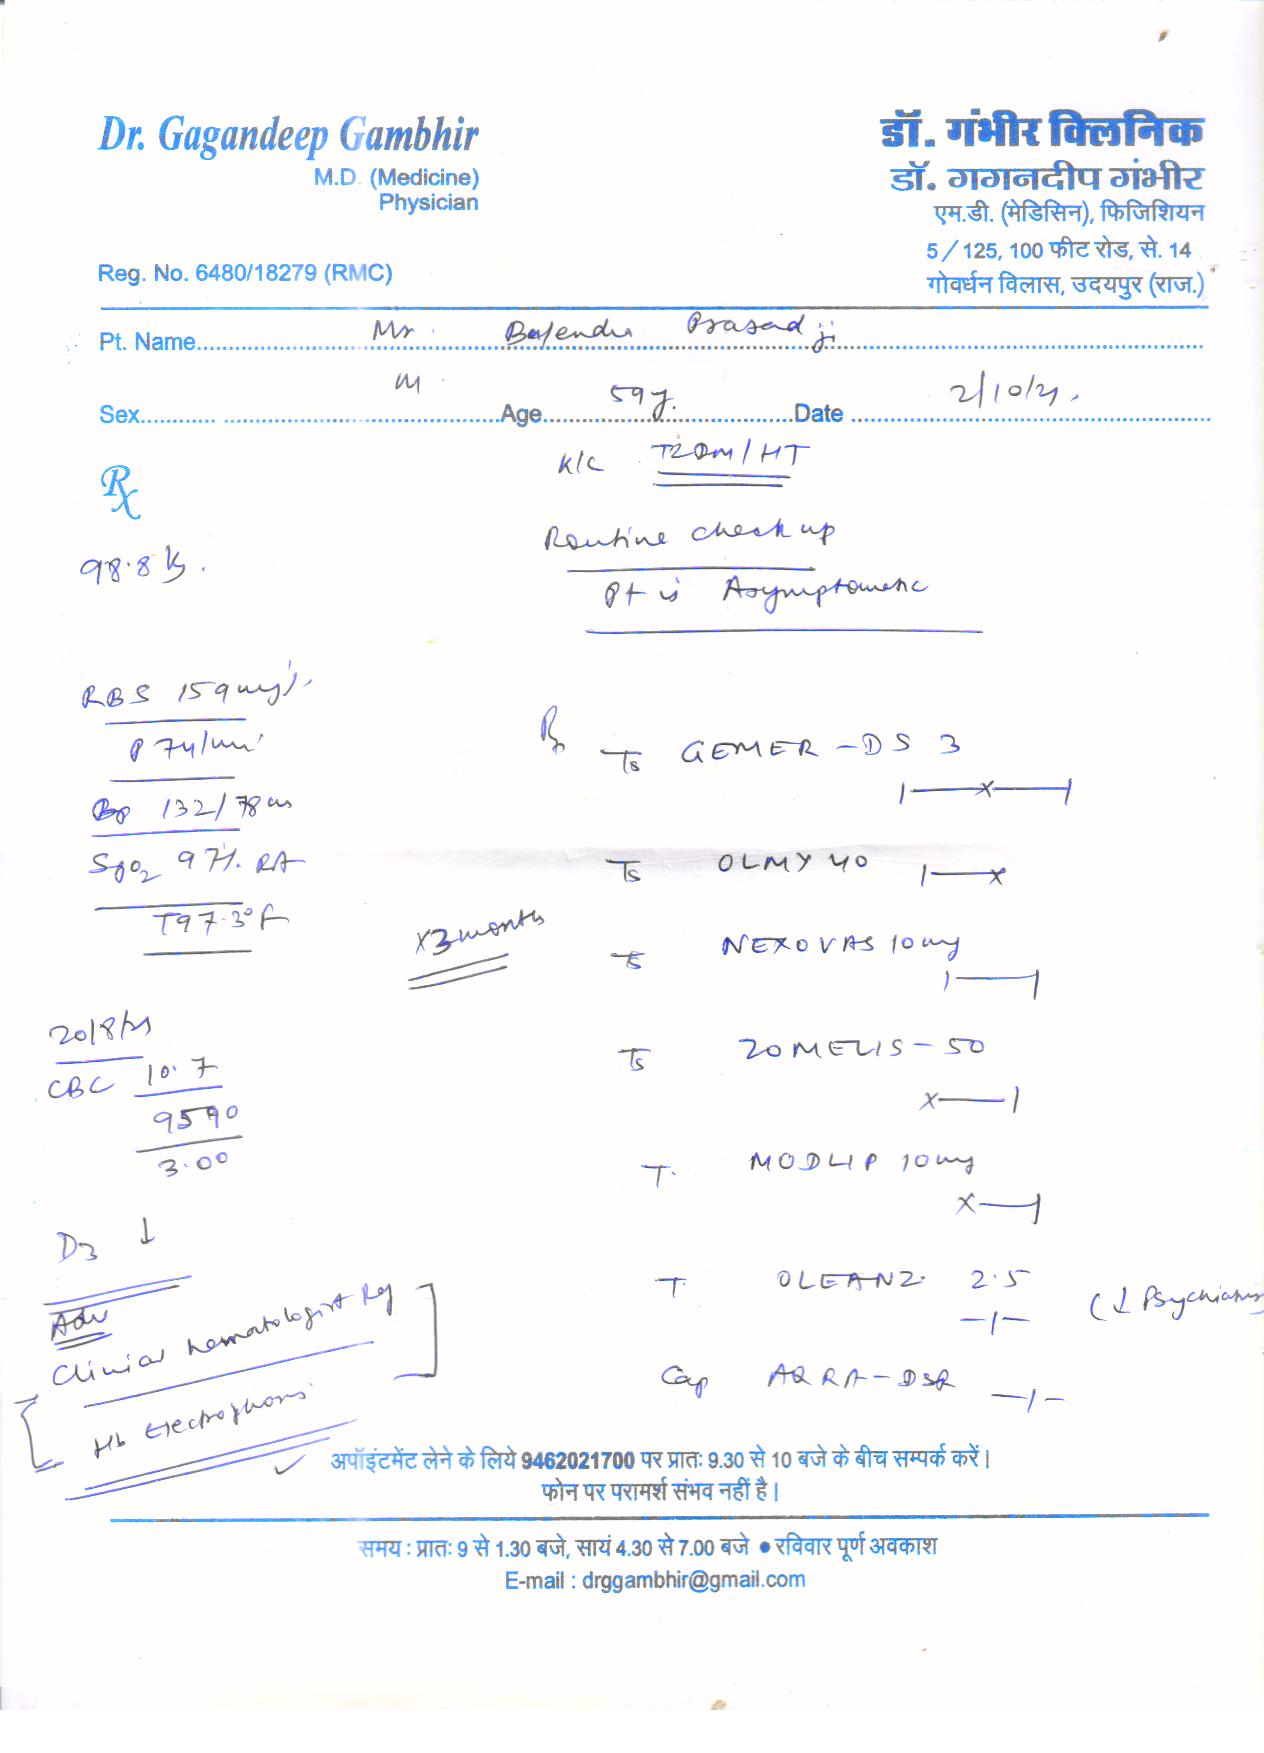 Dr. Gagandeep Gambhir
M.D. (Medicine)
Physician
Reg. No. 6480/18279 (RMC)
डॉ. गंभीर क्लिनिक
डॉ. गगनदीप गंभीर
एम.डी. (मेडिसिन), फिजिशियन
5/125, 100 फीट रोड, से. 14
गोवर्धन विलास, उदयपुर (राज.)
Pt. Name Mr. Prasad ji
Sex M Age 59y. Date 2/10/21.
K/C T2DM/HT
Routine check up
Pt is Asymptomatic
Rx
98.8 kg.
RBS 159 mg%
P 74/min
Bp 132/78
SpO2 97% RA
T 97.3°F
20/8/21
CBC 10.7
9590
3.00
D3 ↓
Adv
Clinical Hematologist Ref
Hb Electrophoris
Rx Ts GEMER-DS 3
Ts OLMY 40
x3 months
Ts NEXOVAS 10 mg
Ts ZOMELIS-50
T. MODLIP 10 mg
T. OLEANZ 2.5
(↓ Psychiatris
Cap ARRA-DSR
अपॉइंटमेंट लेने के लिये 9462021700 पर प्रातः 9.30 से 10 बजे के बीच सम्पर्क करें।
फोन पर परामर्श संभव नहीं है।
समय : प्रातः 9 से 1.30 बजे, सायं 4.30 से 7.00 बजे ● रविवार पूर्ण अवकाश
E-mail : drggambhir@gmail.com